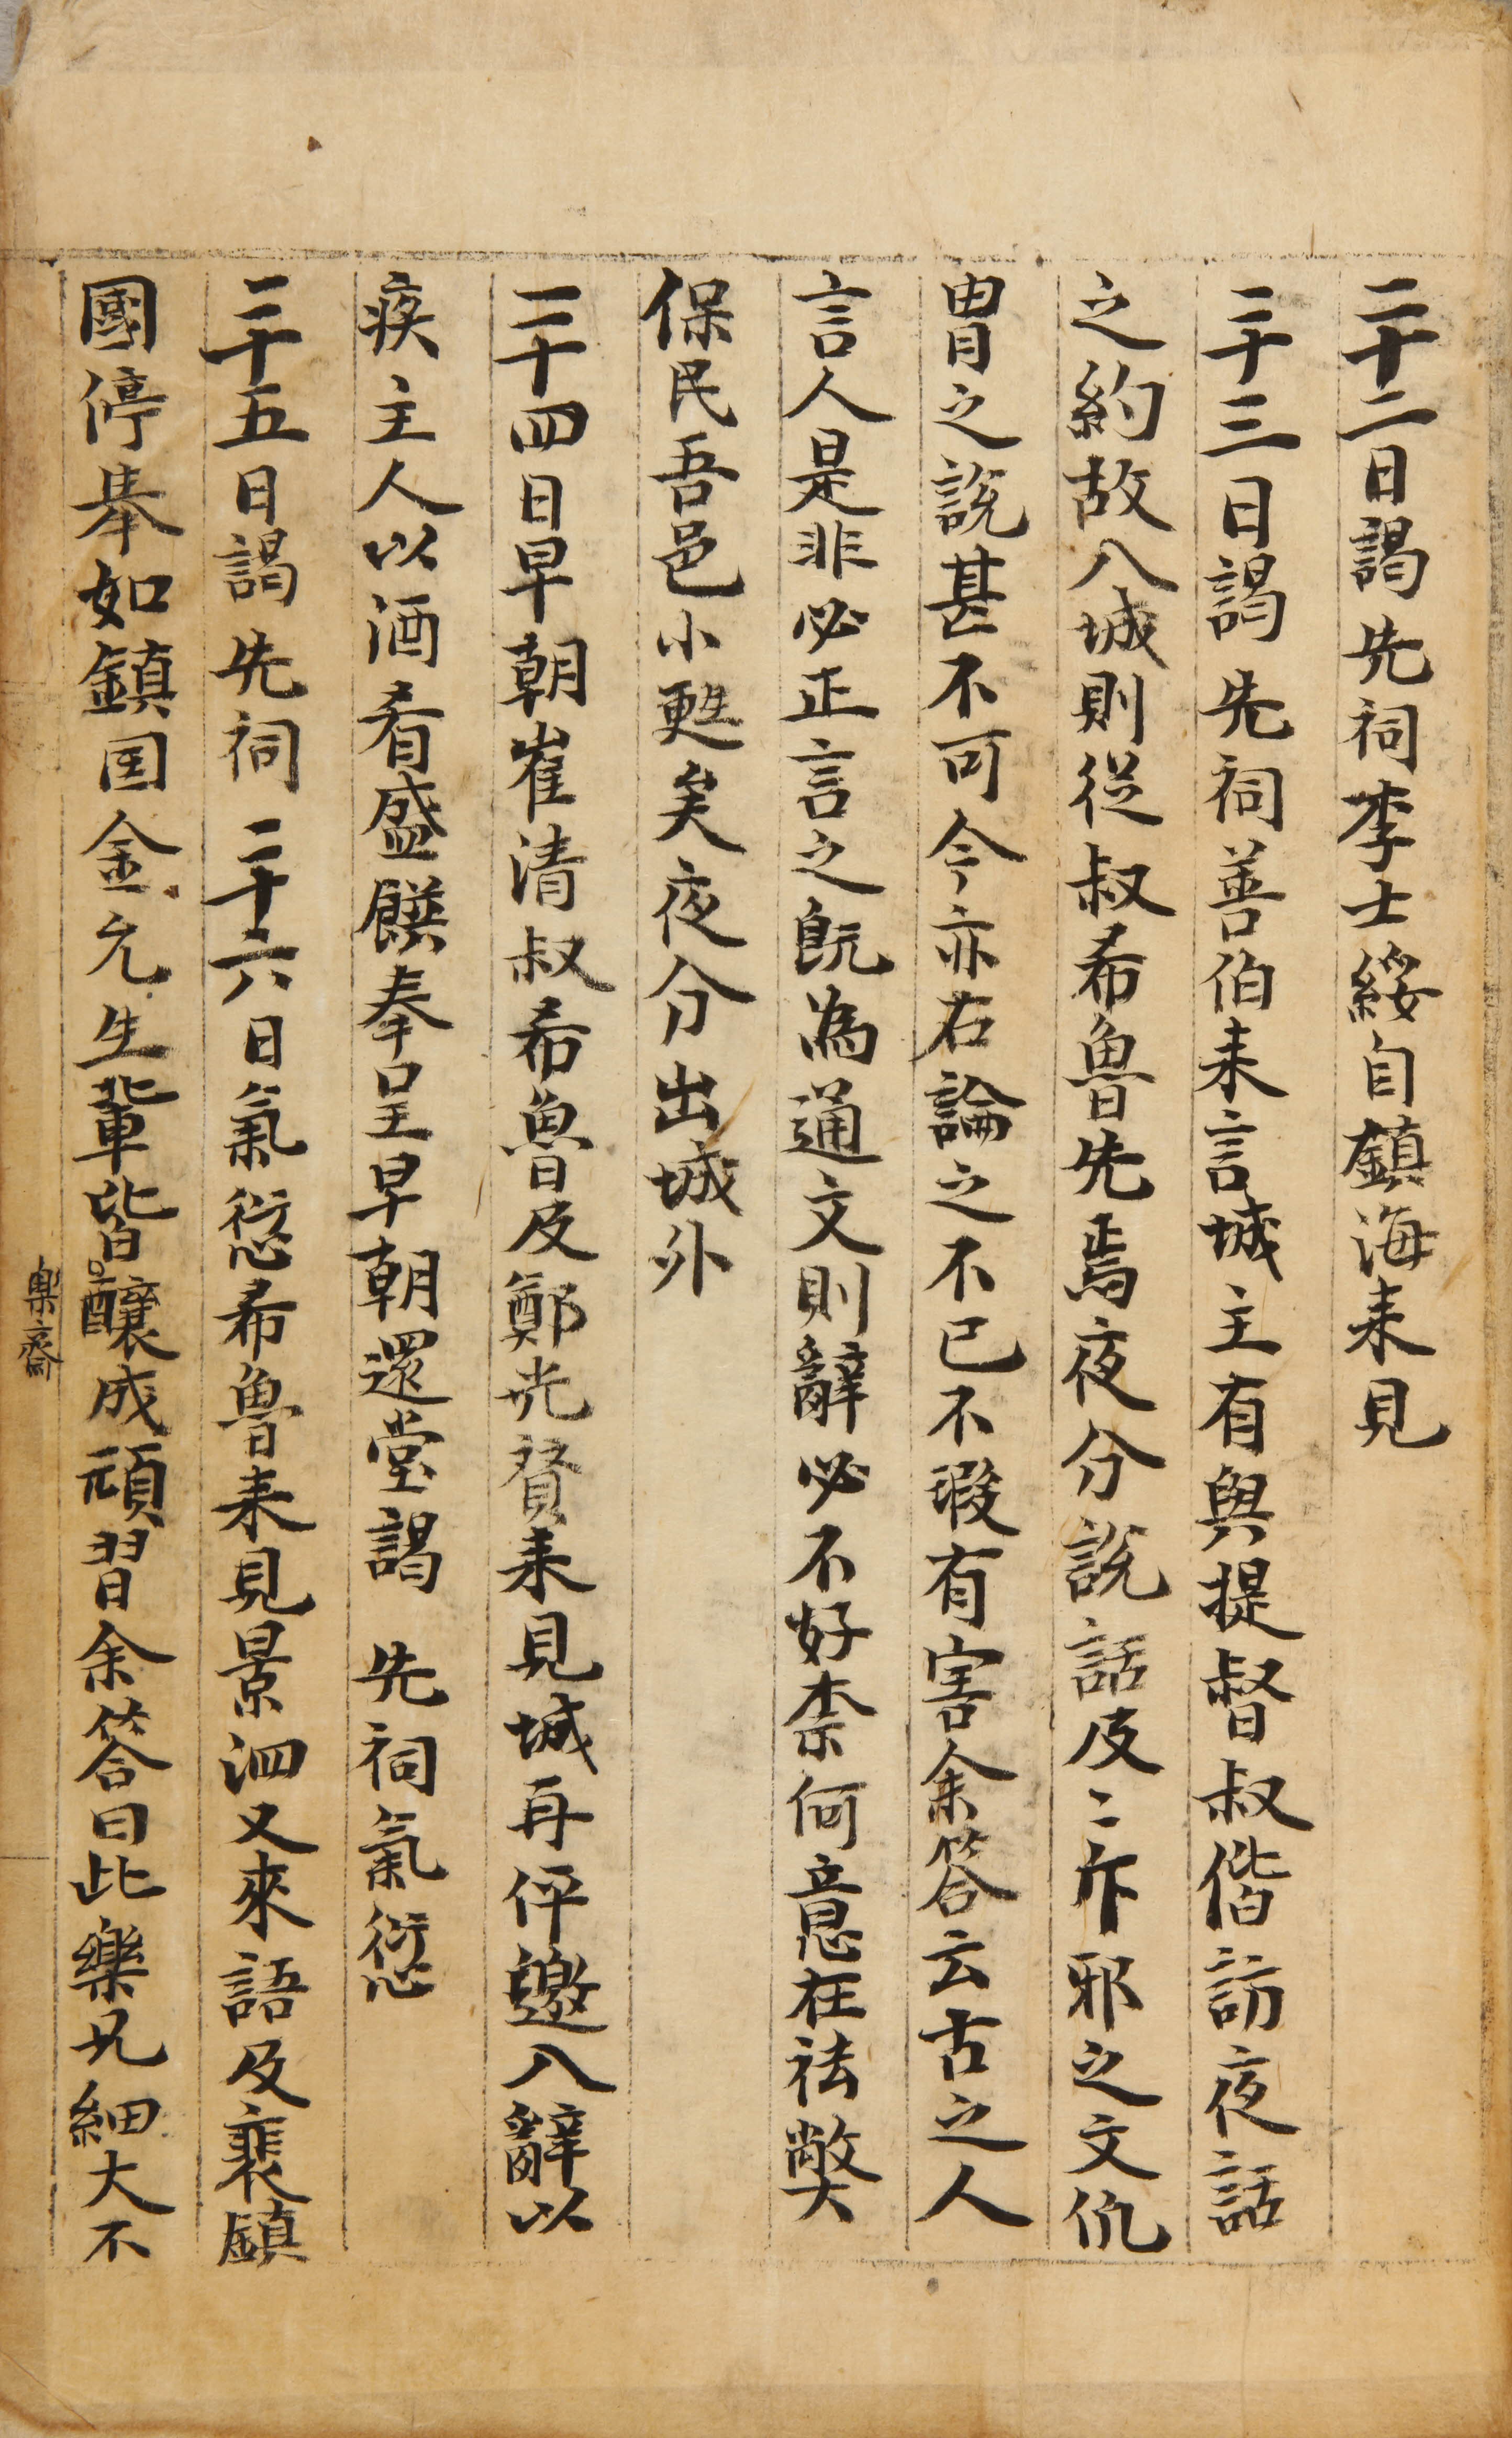 二十二日謁先祠李士綏自鎮海来見
二十三日謁先祠善伯来言城主有與提督叔偕訪夜話
之約故入城則從叔希魯先焉夜分說話及〻斥邪之文仇
冑之說甚不可今亦右論之不已不瑕有害余答云古之人
言人是非必正言之既為通文則辭必不好柰何意在袪獘
保民吾邑小甦矣夜分出城外
二十四日早朝崔清叔希魯及鄭光贇来見城再伻邀入辭以
疾主人以酒肴盛饌奉呈早朝還堂謁 先祠氣愆
二十五日謁 先祠 二十六日氣愆希魯来見景泗又來語及裵鎮
國停举如鎮国金允生輩皆釀成頑習余答曰此樂兄細大不
樂齋